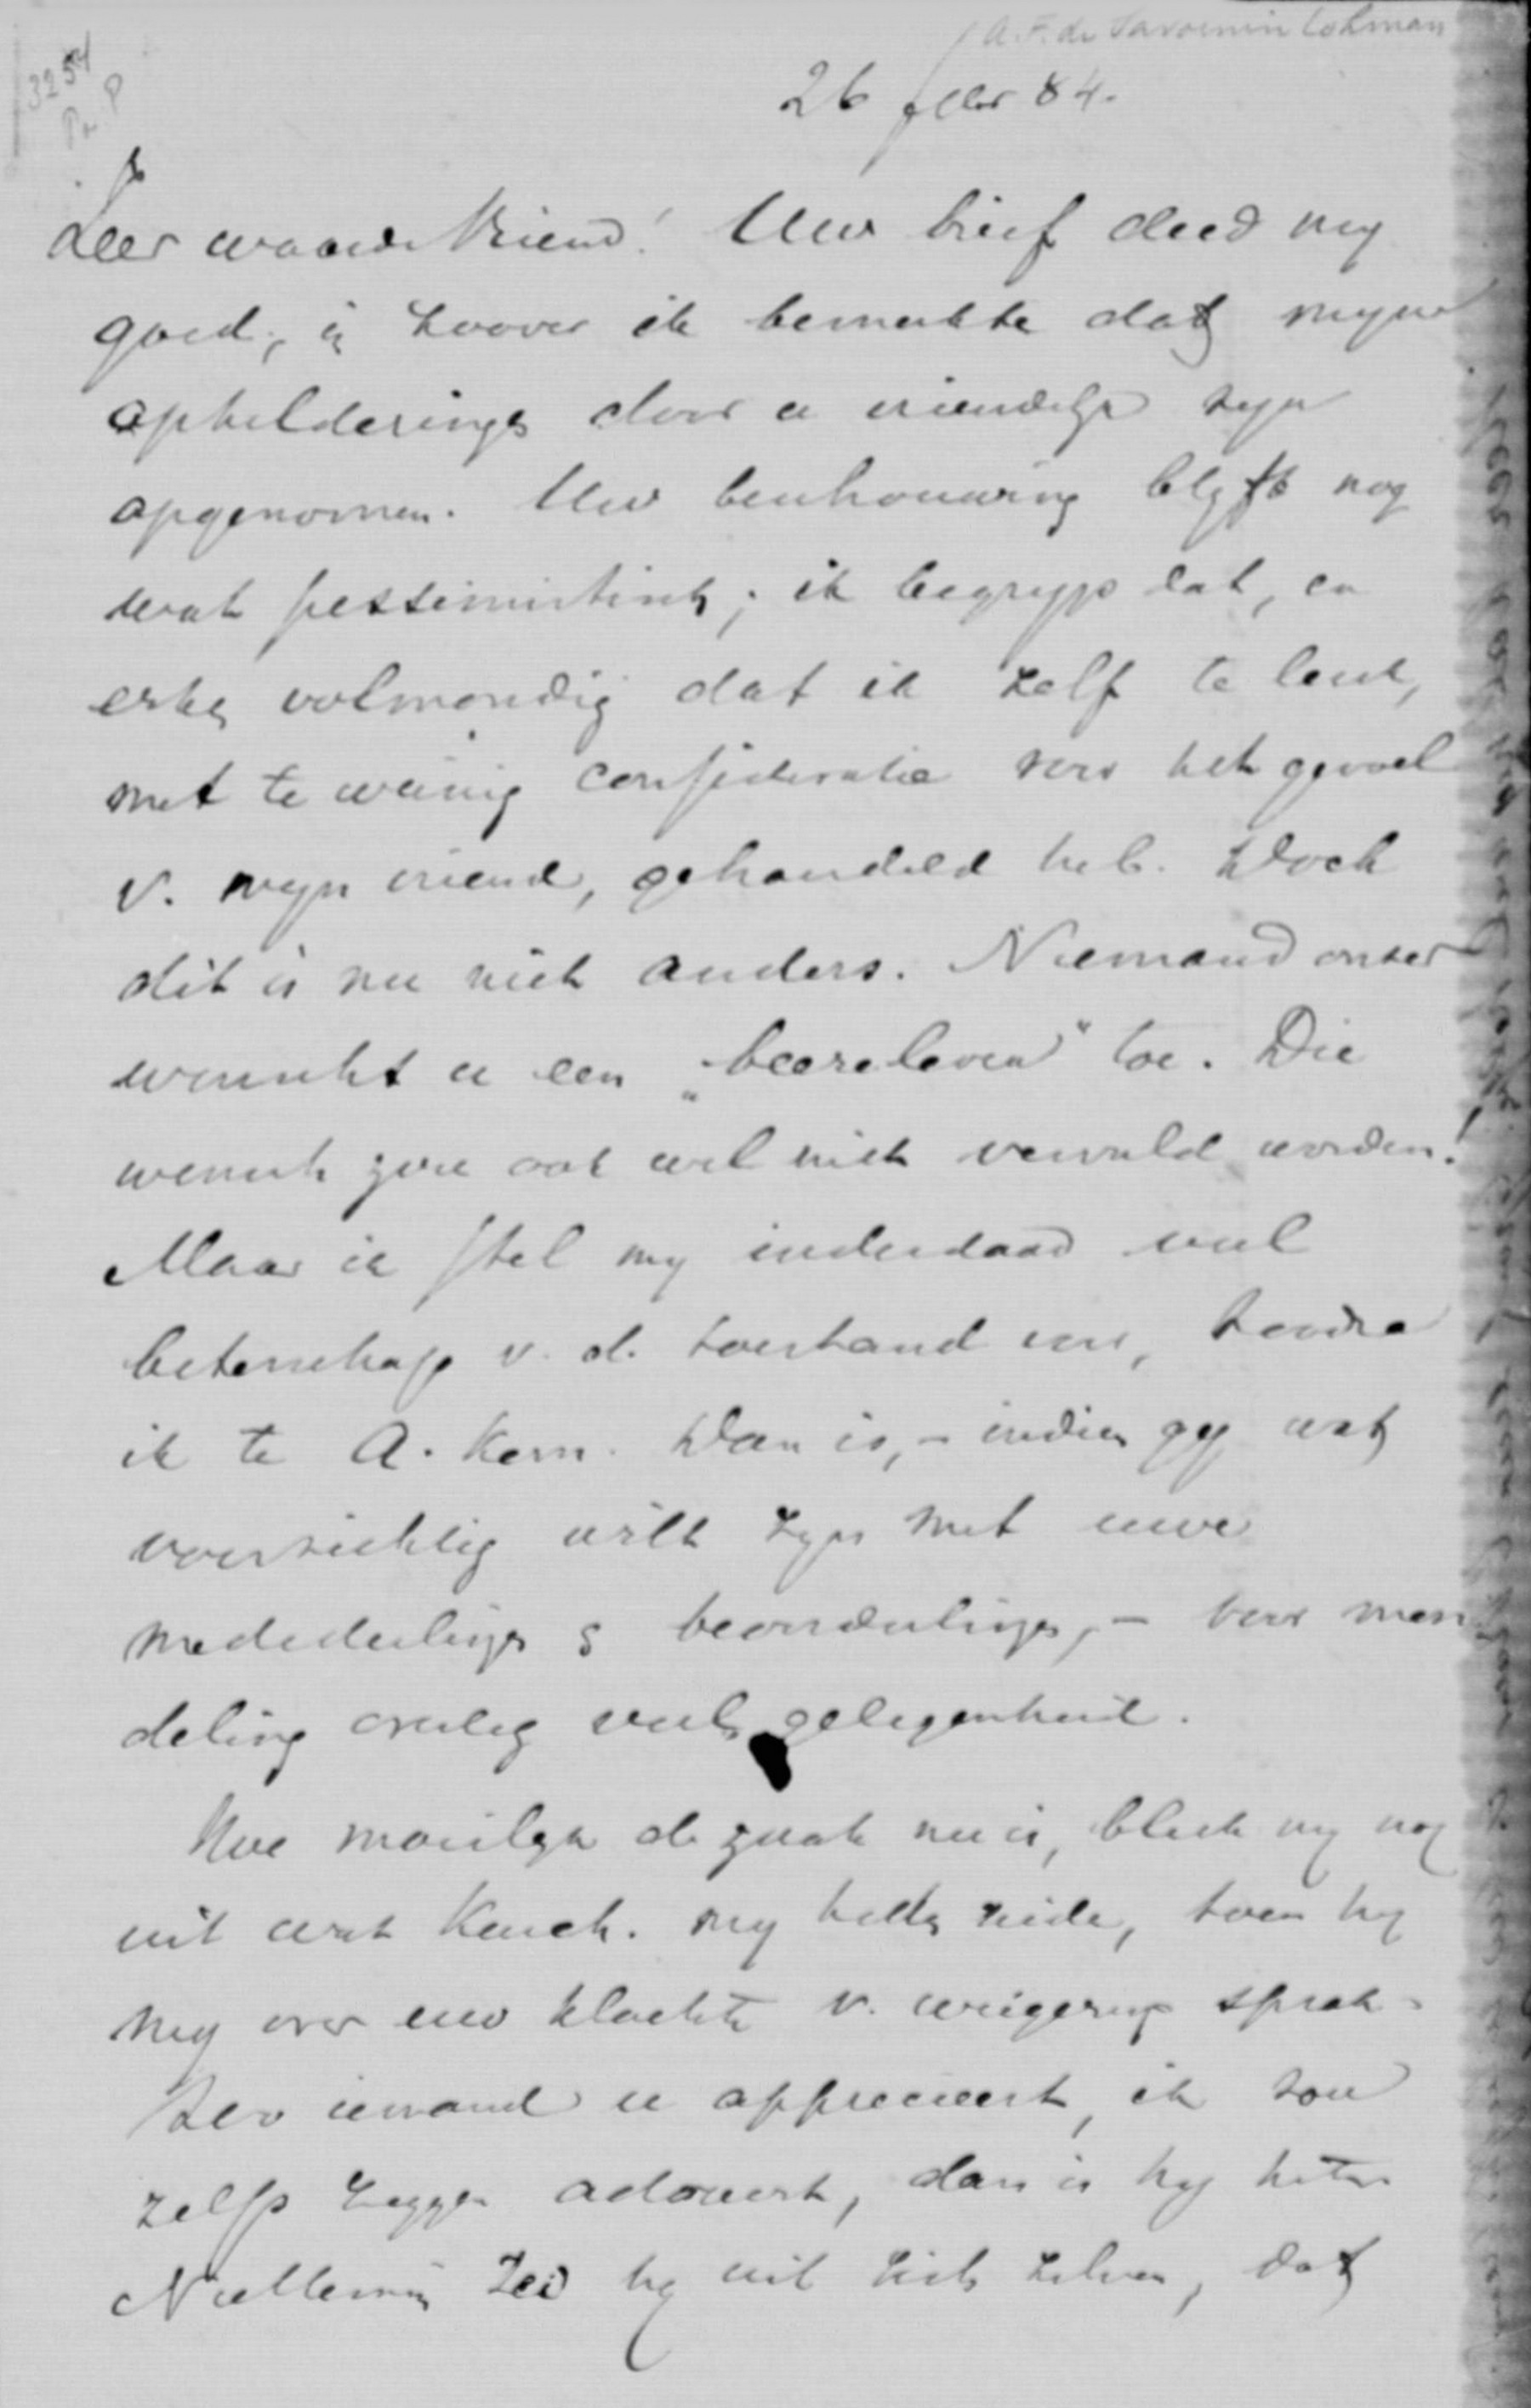 A.F. de Savornin Lohman
3254
Pa P
26 84.
Zeer waarde Vriend! Uw brief deed mij
goed, in zoover ik bemerkte dat mijne
ophelderings door u vriendelijk zijn
opgenomen. Uw beschouwing blijft nog
wat pessimistisch; ik begrijp dat, en
erken volmondig dat ik zelf te laat,
met te weinig consideratie voor het gevoel
v. mijn vriend, gehandeld heb. Doch
dit is nu niet anders. Niemand onzer
wenscht u een "beereleven" toe. Die
wensch zou ook wel niet vervuld worden!
Maar ik stel mij inderdaad veel
beterschap v. d. toestand voor, zoodra
ik te A. kom. Dan is, - indien gij wat
voorzichtig wilt zijn met uwe
mededeelings & beoordeelings, - voor men
deling overleg veel gelegenheid.
Hoe moeilijk de zaak nu is, bleek mij nog
uit wat Keuch. mij zeide, toen hij
mij over uw klachte v. weigering sprak.
Zoo iemand u apprecieert, ik zou
zelfs zeggen adoreert, dan is hij het.
Niettemin zei hij uit zich zelven, dat